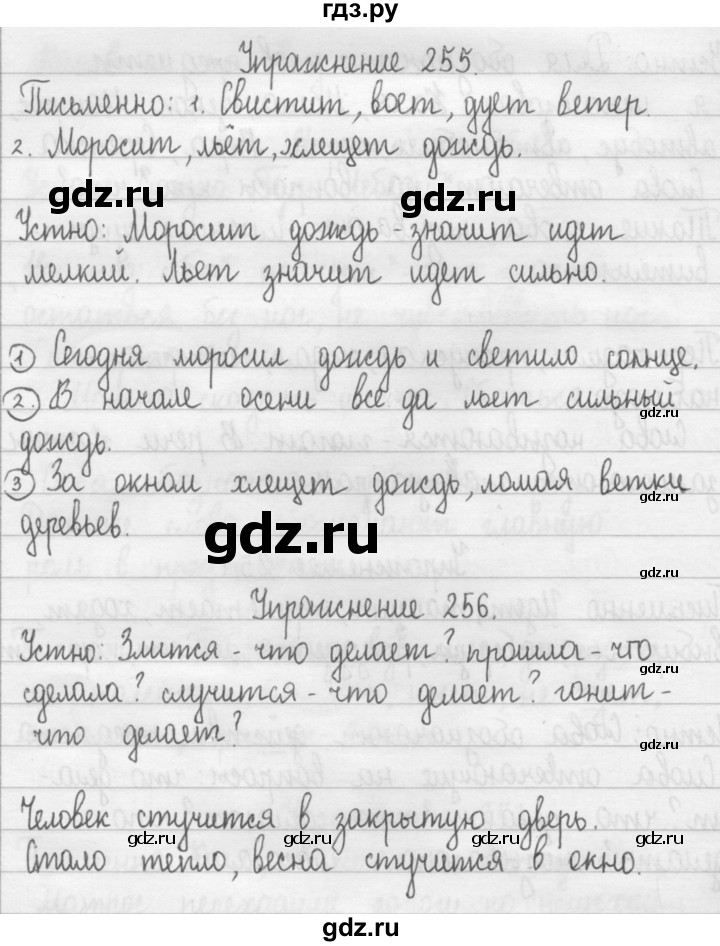 гдз.ру
Упражнение 255.
Письменно: 1. Свистит, воет, дует ветер.
2. Моросит, льёт, хлещет дождь.
gdz.ru gdz.ru
Устно: Моросит дождь - значит идет
мелкий. Льет значит идет сильно.
① Сегодня моросил дождь и светило солнце.
gdz.ru
②. В начале осени все да льет сильный
gdz.ru
дождь.
③ За окном хлещет дождь, ломая ветки
gdz.ru
деревьев.
gdz.ru
gdz.ru
Упражнение 256.
gdz.ru
Устно: Злится - что делает? прошла - что
сделала? случится - что делает? гонит -
что делает?
gdz.ru
Человек стучится в закрытую дверь.
gdz.ru gdz.ru gdz.ru gdz.ru
Стало тепло, весна стучится в окно.
gdz.ru